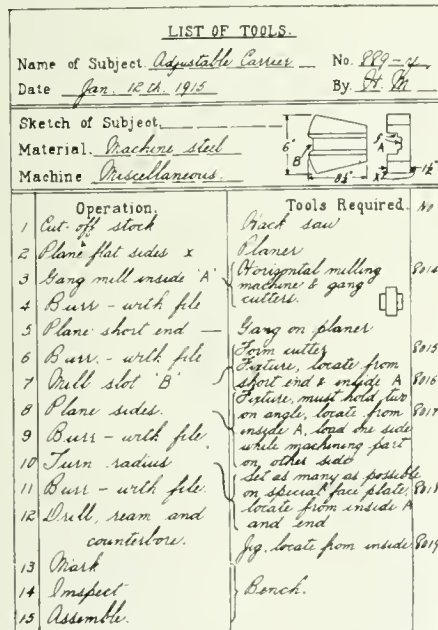 LIST OF TOOLS.
Name of Subject. Adjustable Carrier No. 889-4
Date Jan. 12th. 1915 By. H. M
Sketch of Subject.
Material. Machine steel
Machine Miscellaneous.
6" B 8½" f A x 1½"
Operation. Tools Required. No
1 Cut-off stock Hack saw
2 Plane flat sides x Planer
3 Gang mill inside 'A' Horizontal milling 8014
machine & gang
4 Burr - with file cutters.
5 Plane short end — Gang on planer
6 Burr. - with file Form cutter 8015
7 Mill slot 'B' Fixture, locate from
short end & inside A 8016
8 Plane sides. Fixture, must hold two
on angle, locate from 8017
9 Burr - with file inside A, load one side
while machining part
10 Turn radius on other side
11 Burr - with file. Set as many as possible
on special face plate, 8018
12 Drill, ream and locate from inside A
counterbore. and end
Jig, locate from inside 8019
13 Mark
14 Inspect Bench.
15 Assemble.